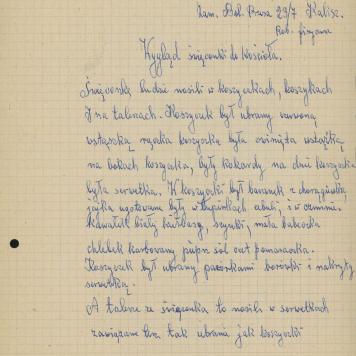 Zam. Bol. Prusa 29/7 Kalisz.
Wygląd święconki do kościoła.
Święconkę ludzie nosili w koszyczkach, koszykach
I na talerzach. Koszyczek był ubrany czerwoną
wstążką rączka koszyczka była owinięta wstążką
na bokach koszyczka, były kokardy na dnie koszyczka
była serwetka. W koszyczku był baranek z chorągiewką,
jajka ugotowane były w łupinkach cebuli, i w
kawałek białej kiełbasy, szynki, mała babeczka
chlebek karbowany pieprz sól ocet pomarańcza.
Koszyczek był ubrany borówki i nakryty
serwetką.
A talerze ze święconką to nosili w serwetkach
zawiązane też tak ubrane jak koszyczki